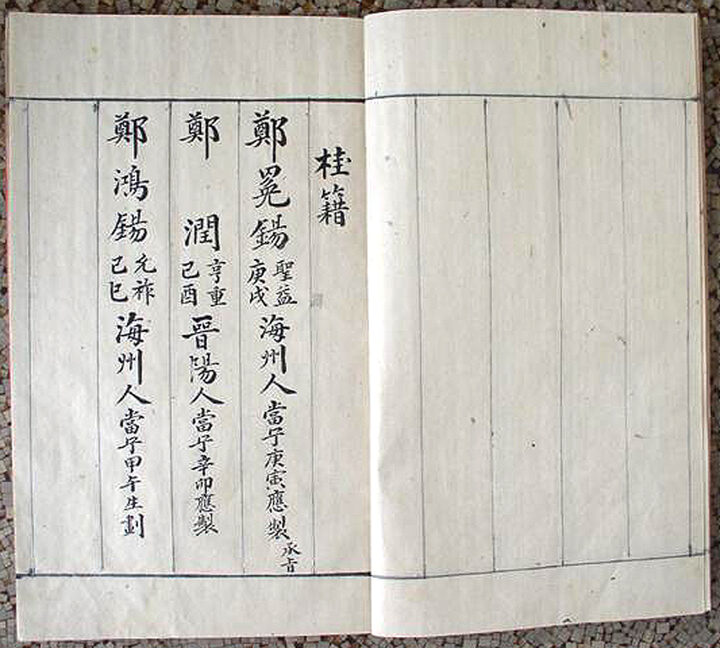 桂籍
鄭冕錫 聖益 庚戌 海州人 當宁庚寅應製 承旨
鄭 潤 亨重 己酉 晋陽人 當宁辛卯應製
鄭鴻錫 允祚 己巳 海州人 當宁甲午生劃